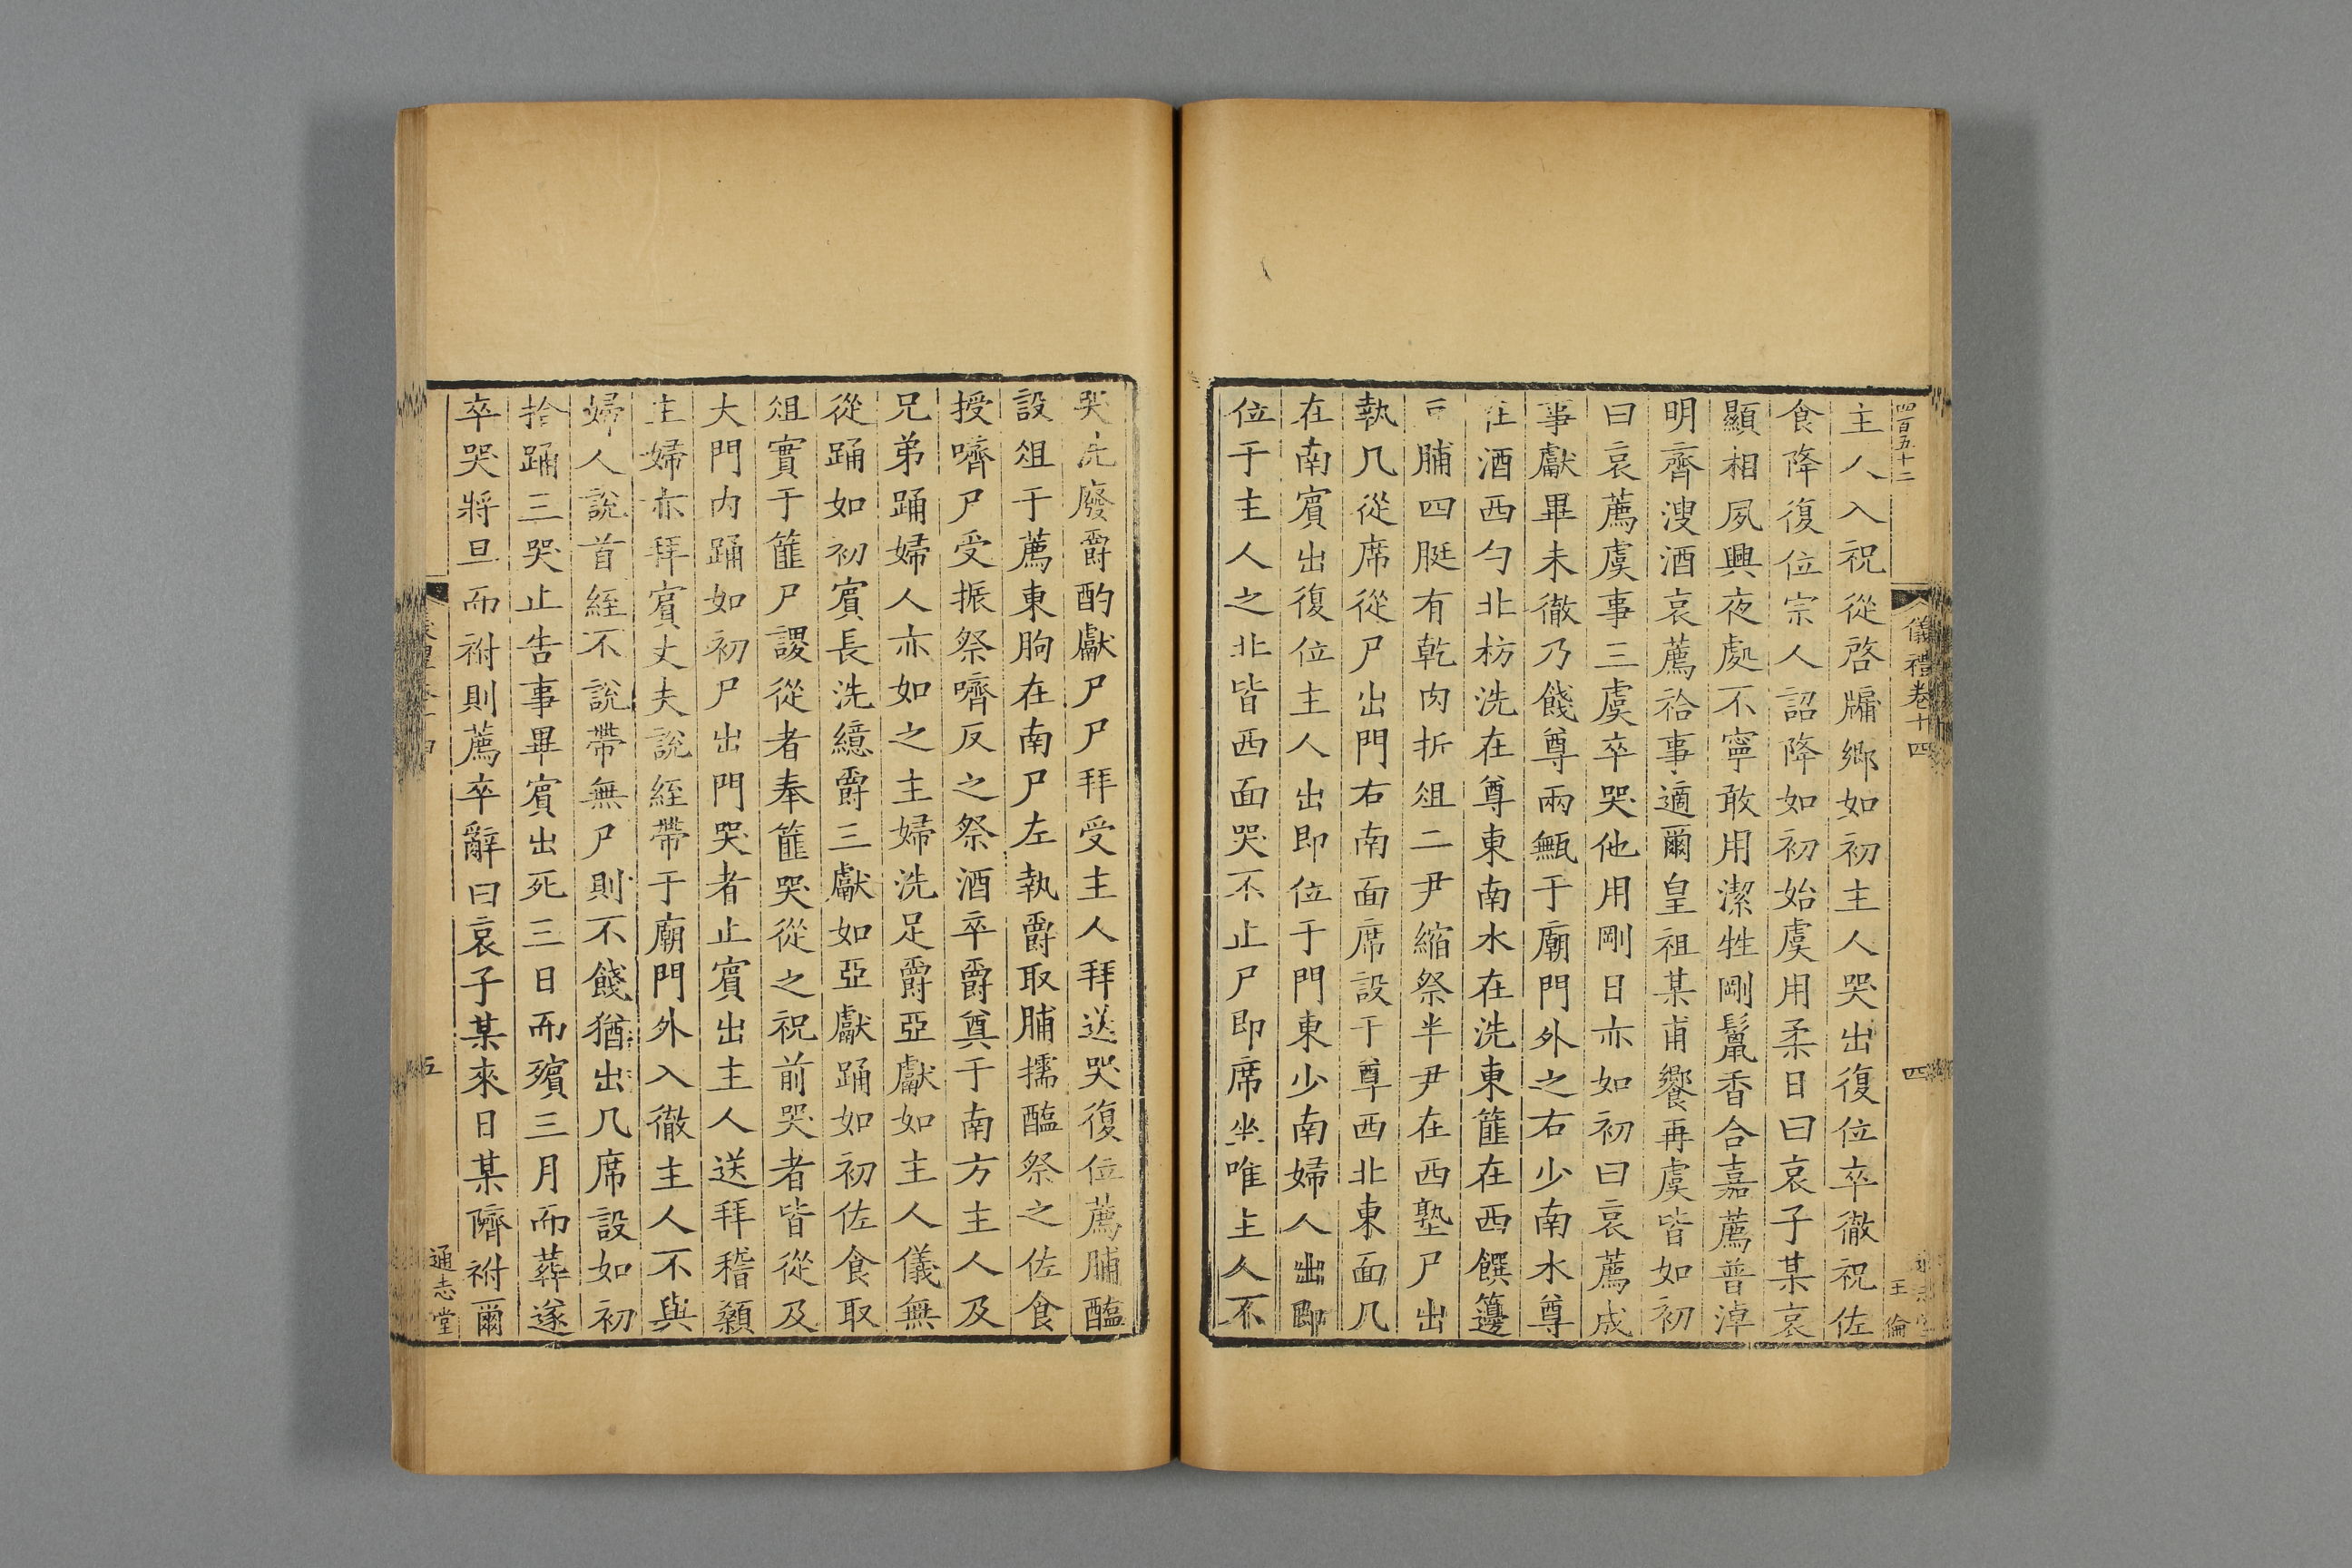 四百五十二
儀禮卷十四
四
王倫
主人入祝從啓牖鄉如初主人哭出復位卒徹祝佐
食降復位宗人詔降如初始虞用柔日曰哀子某哀
顯相夙興夜處不寧敢用潔牲剛鬣香合嘉薦普淖
明齊溲酒哀薦祫事適爾皇祖某甫饗再虞皆如初
曰哀薦虞事三虞卒哭他用剛日亦如初曰哀薦成
事獻畢未徹乃餞尊兩甒于廟門外之右少南水尊
在酒西勺北枋洗在尊東南水在洗東篚在西饌籩
豆脯四脡有乾肉折俎二尹縮祭半尹在西塾尸出
執几從席從尸出門右南面席設于尊西北東面几
在南賓出復位主人出即位于門東少南婦人出即
位于主人之北皆西面哭不止尸即席坐唯主人不
哭洗廢爵酌獻尸尸拜受主人拜送哭復位薦脯醢
設俎于薦東朐在南尸左執爵取脯擩醢祭之佐食
授嚌尸受振祭嚌反之祭酒卒爵奠于南方主人及
兄弟踊婦人亦如之主婦洗足爵亞獻如主人儀無
從踊如初賓長洗繶爵三獻如亞獻踊如初佐食取
俎實于篚尸謖從者奉篚哭從之祝前哭者皆從及
大門內踊如初尸出門哭者止賓出主人送拜稽顙
主婦亦拜賓丈夫說絰帶于廟門外入徹主人不與
婦人說首絰不說帶無尸則不餞猶出几席設如初
拾踊三哭止告事畢賓出死三日而殯三月而葬遂
卒哭將旦而祔則薦卒辭曰哀子某來日某隮祔爾
五
通志堂